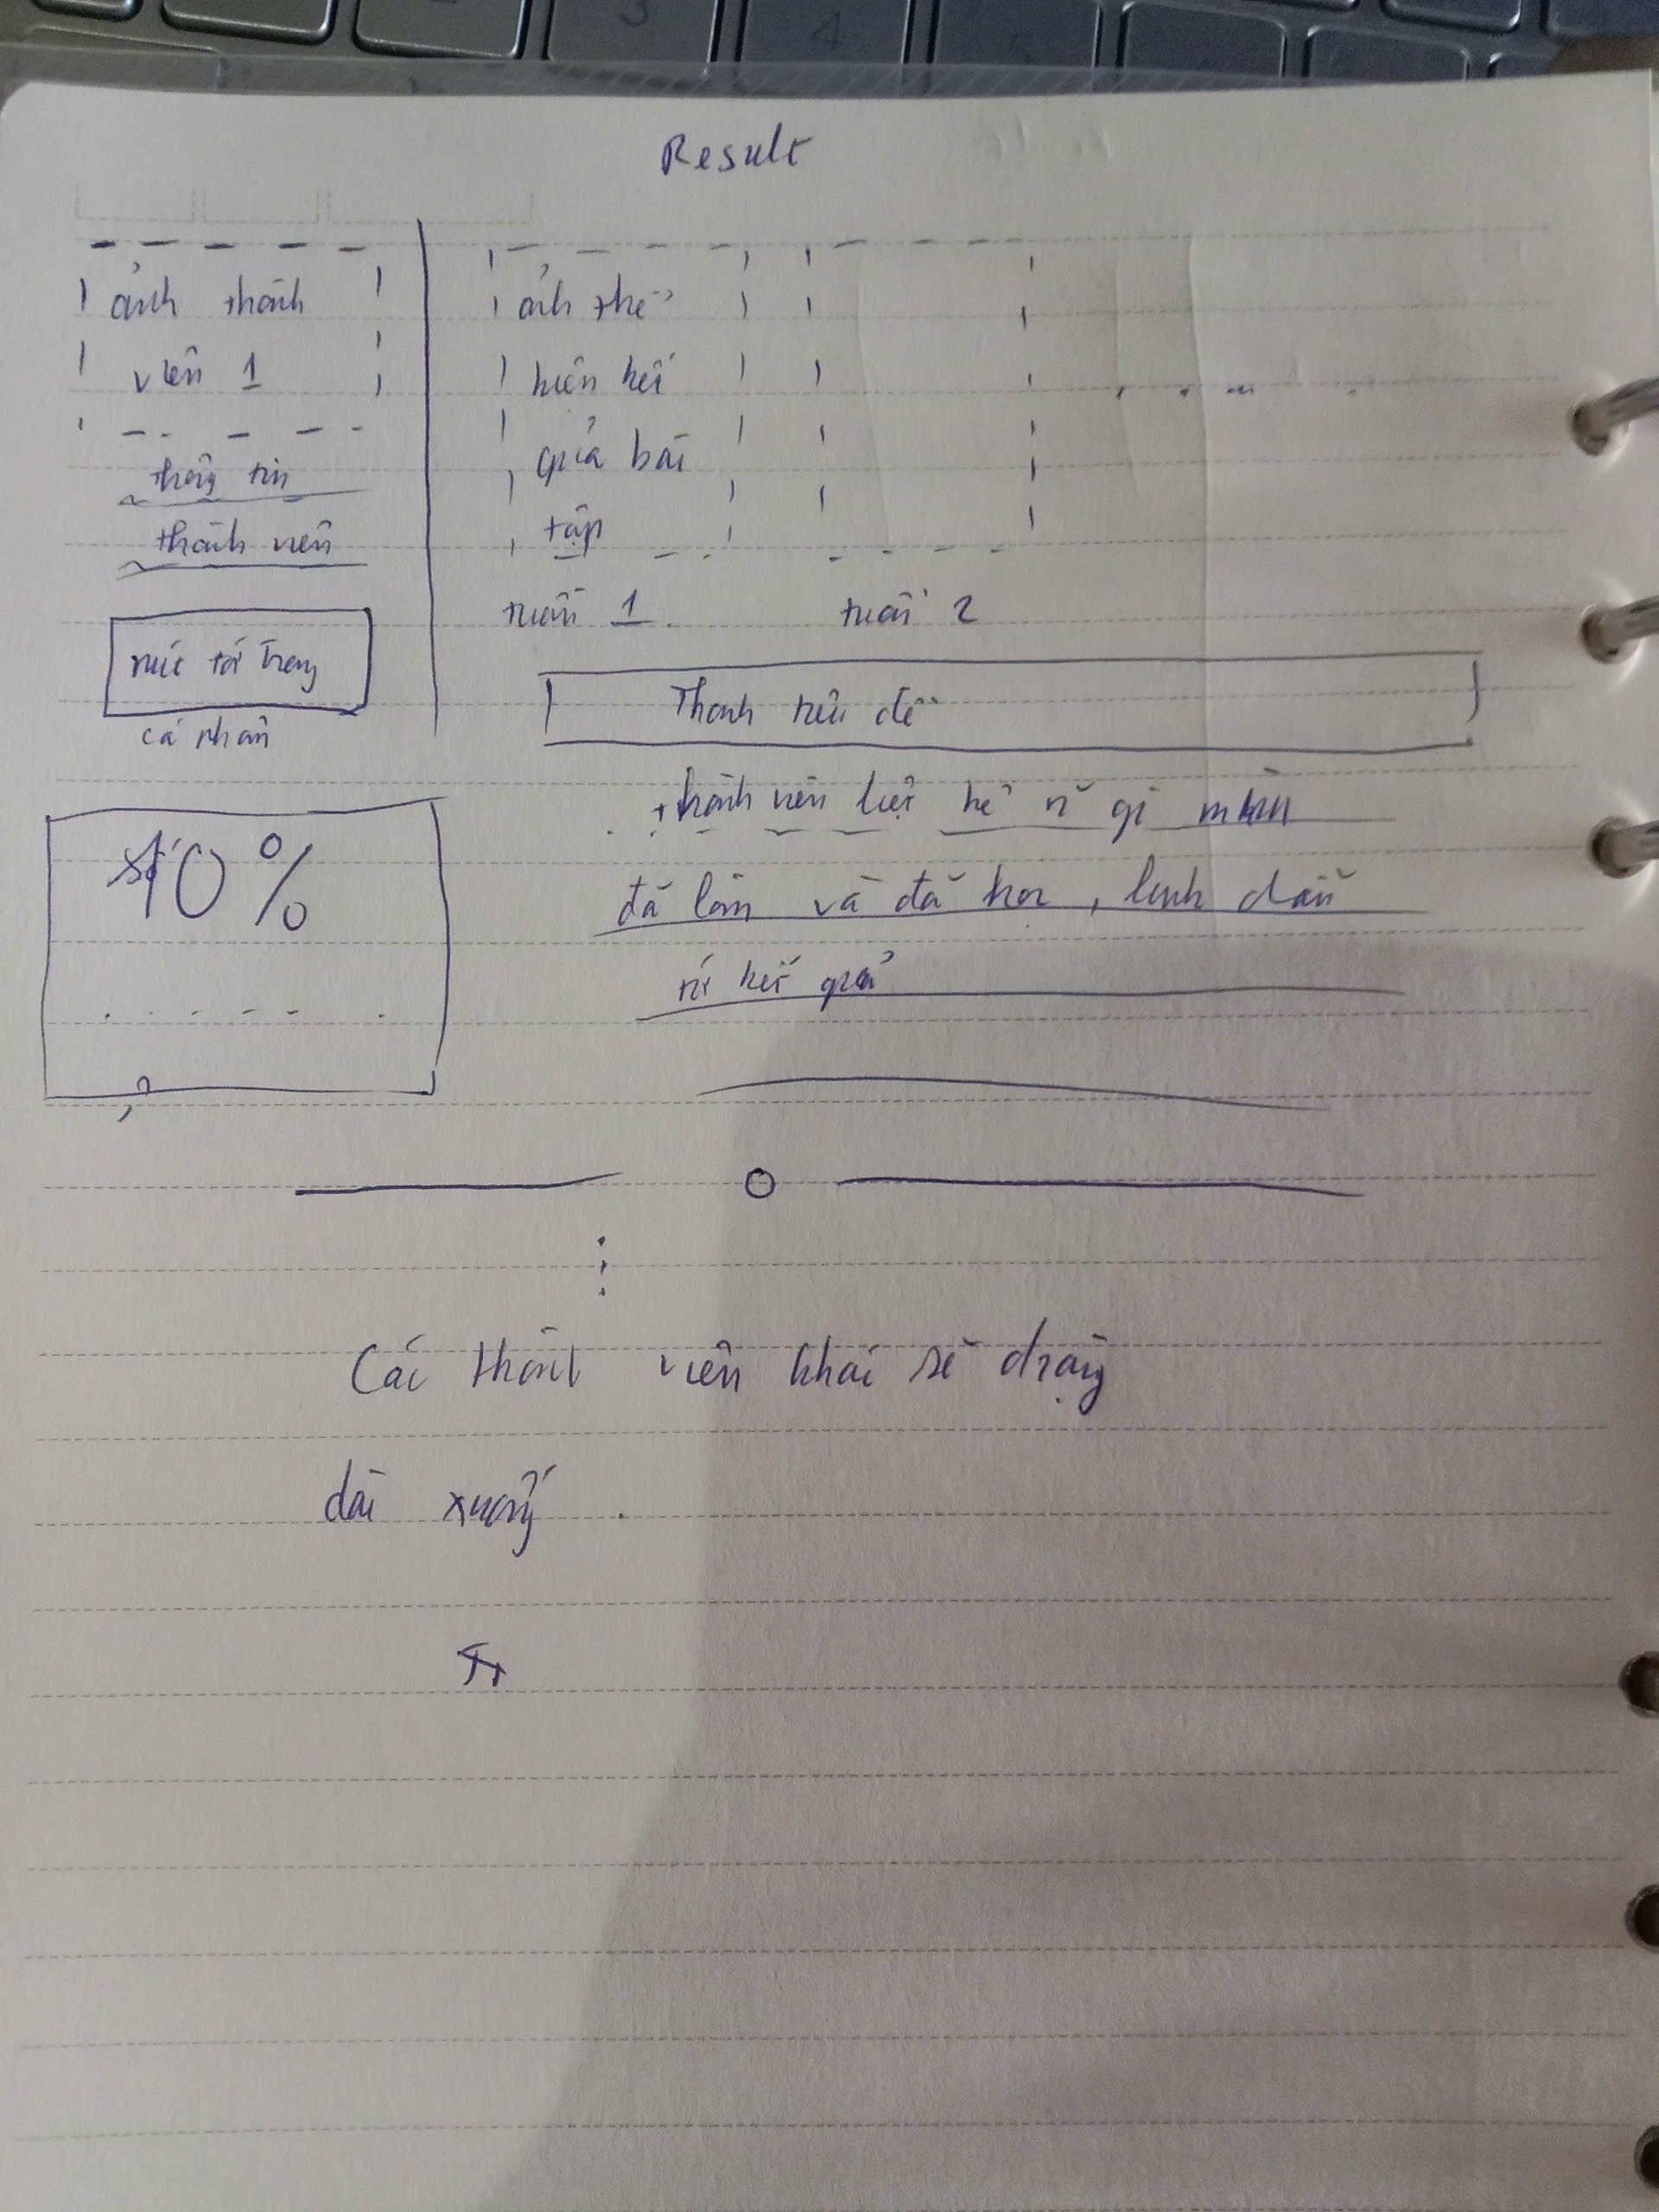 Result
ảnh thành
viên 1
thông tin
thành viên
nút tới trang
cá nhân
ảnh thể
hiện kết
quả bài
tập
tuần 1
tuần 2
Thanh tiêu đề
thành viên liệt kê gì mình
đã làm và đã học, dẫn
kết quả
10%
Các thành viên khác sẽ dạng
dài xuống.